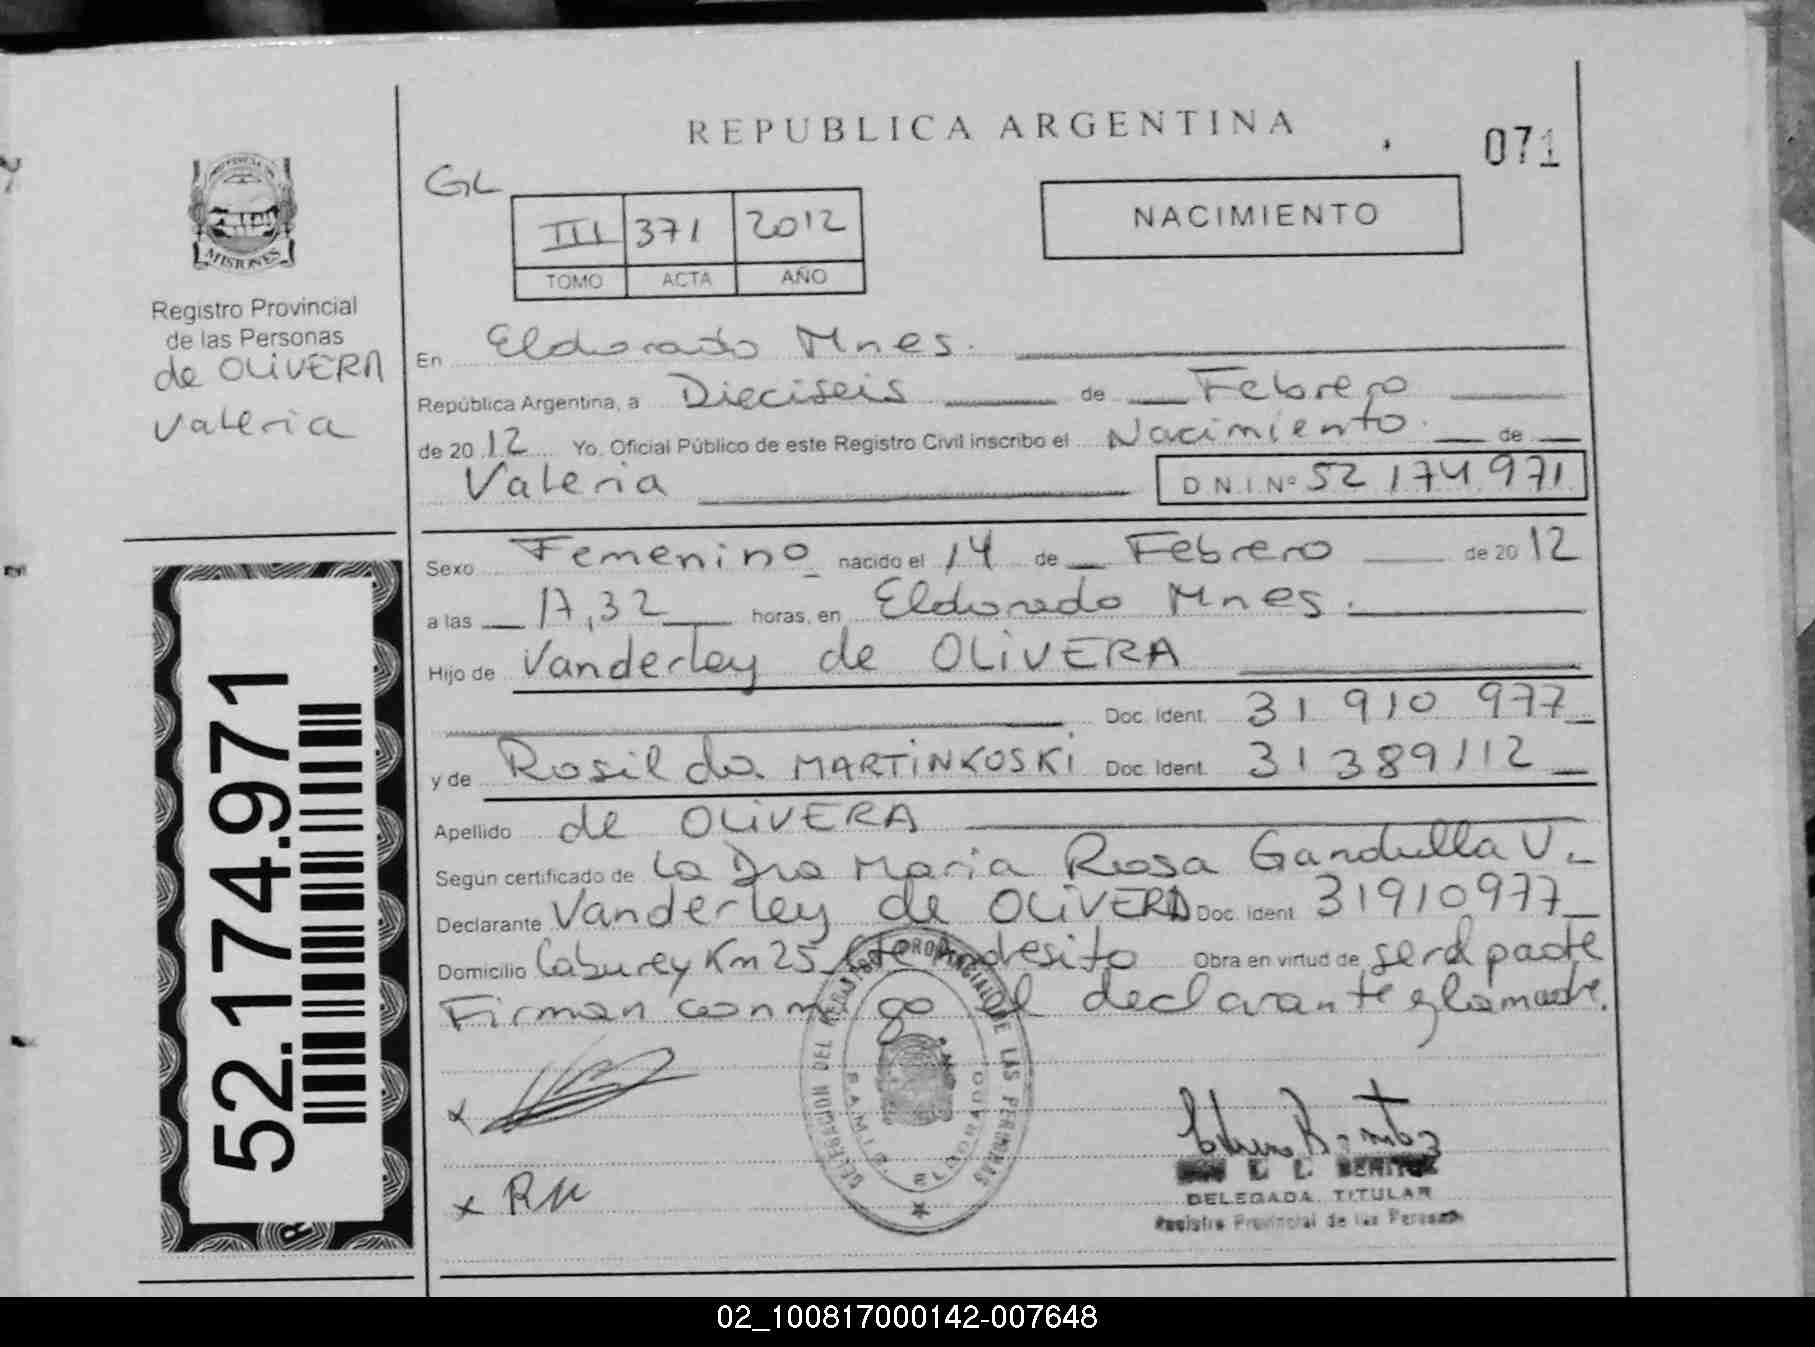 REPUBLICA ARGENTINA
071
GL
III 371 2012
TOMO ACTA AÑO
NACIMIENTO
MISIONES
Registro Provincial
de las Personas
de OLiVERA
Valeria
En Eldorado Mnes.
República Argentina, a Dieciseis de Febrero
de 2012 Yo, Oficial Público de este Registro Civil inscribo el Nacimiento de
Valeria D.N.I.Nº 52 174 971
Sexo Femenino nacido el 14 de Febrero de 2012
a las 17,32 horas, en Eldorado Mnes.
Hijo de Vanderley de OLiVERA
Doc. Ident. 31 910 977
y de Rosilda MARTiNKOSKi Doc. Ident. 31 389112
Apellido de OLiVERA
Según certificado de La Dra Maria Rosa Gandulla V.
Declarante Vanderley de OLiVERA Doc. Ident 31910977
Domicilio Caburey Km 25 Obra en virtud de ser el padre
Firman conmigo el declarante y la madre.
52.174.971
x
x RM
ELDORADO
BENITEZ
DELEGADA TITULAR
Registro Provincial de las Personas
02_100817000142-007648